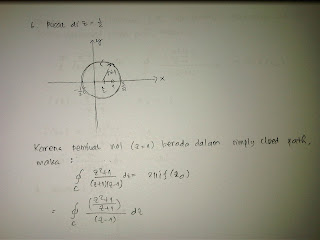 c. Pusat di z = 1/2
iy
c
x
Karena pembuat nol (z-1) berada dalam simply closed path,
maka :
∮c z²+1 / (z+1)(z-1) dz = 2πi f(z₀)
= ∮c [z²+1 / z+1] / (z-1) dz